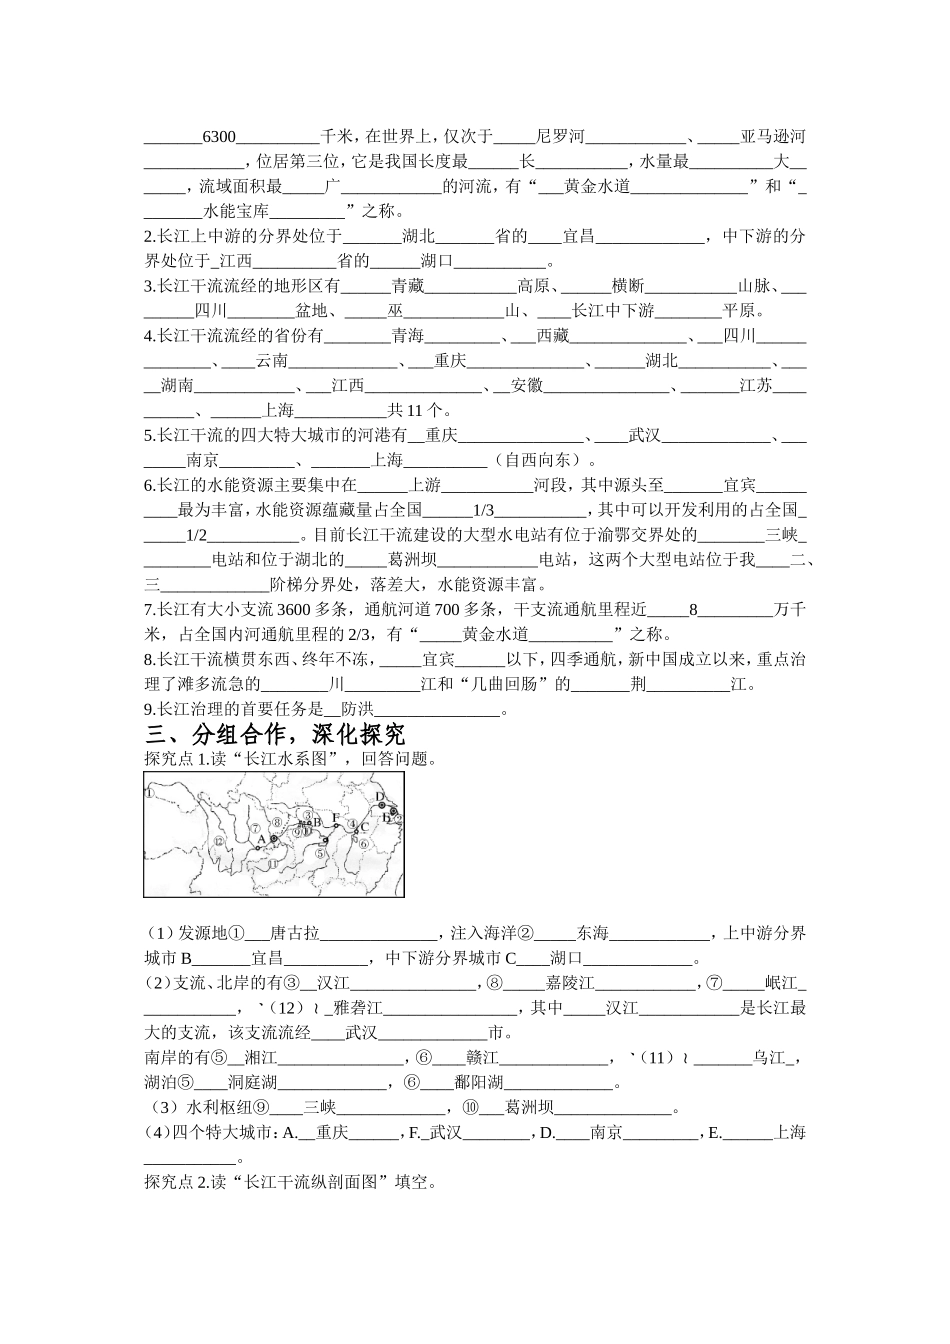 _______6300__________千米，在世界上，仅次于_____尼罗河____________、_____亚马逊河
____________，位居第三位，它是我国长度最______长___________，水量最__________大__
_____，流域面积最_____广____________的河流，有“___黄金水道______________”和“_
_______水能宝库_________”之称。
2.长江上中游的分界处位于_______湖北_______省的____宜昌_____________，中下游的分
界处位于_江西__________省的______湖口___________。
3.长江干流流经的地形区有______青藏___________高原、______横断___________山脉、___
______四川________盆地、_____巫____________山、____长江中下游________平原。
4.长江干流流经的省份有________青海_________、___西藏______________、___四川______
________、____云南_____________、___重庆______________、______湖北___________、___
__湖南____________、___江西______________、__安徽_______________、_______江苏____
______、______上海___________共 11 个。
5.长江干流的四大特大城市的河港有__重庆_______________、____武汉_____________、___
_____南京_________、_______上海__________（自西向东）。
6.长江的水能资源主要集中在______上游___________河段，其中源头至_______宜宾______
____最为丰富，水能资源蕴藏量占全国______1/3___________，其中可以开发利用的占全国_
_____1/2___________。目前长江干流建设的大型水电站有位于渝鄂交界处的________三峡_
________电站和位于湖北的_____葛洲坝____________电站，这两个大型电站位于我____二、
三_____________阶梯分界处，落差大，水能资源丰富。
7.长江有大小支流 3600 多条，通航河道 700 多条，干支流通航里程近_____8_________万千
米，占全国内河通航里程的 2/3，有“_____黄金水道__________”之称。
8.长江干流横贯东西、终年不冻，_____宜宾______以下，四季通航，新中国成立以来，重点治
理了滩多流急的________川_________江和“几曲回肠”的_______荆__________江。
9.长江治理的首要任务是__防洪_______________。
三、分组合作，深化探究
探究点 1.读“长江水系图”，回答问题。
① ⑫ ⑦ ⑧ A ⑪ ③ B ⑨ ⑩ F ⑤ ④ C ⑥ D E ②
（1）发源地①___唐古拉______________，注入海洋②_____东海____________，上中游分界
城市 B_______宜昌__________，中下游分界城市 C____湖口_____________。
（2）支流、北岸的有③__汉江_______________，⑧_____嘉陵江____________，⑦_____岷江_
___________，`（12）~_雅砻江________________，其中_____汉江____________是长江最
大的支流，该支流流经____武汉_____________市。
南岸的有⑤__湘江_______________，⑥____赣江_____________，`（11）~_______乌江_，
湖泊⑤____洞庭湖_____________，⑥____鄱阳湖_____________。
（3）水利枢纽⑨____三峡_____________，⑩___葛洲坝______________。
（4）四个特大城市：A.__重庆______，F._武汉________，D.____南京_________，E.______上海
___________。
探究点 2.读“长江干流纵剖面图”填空。